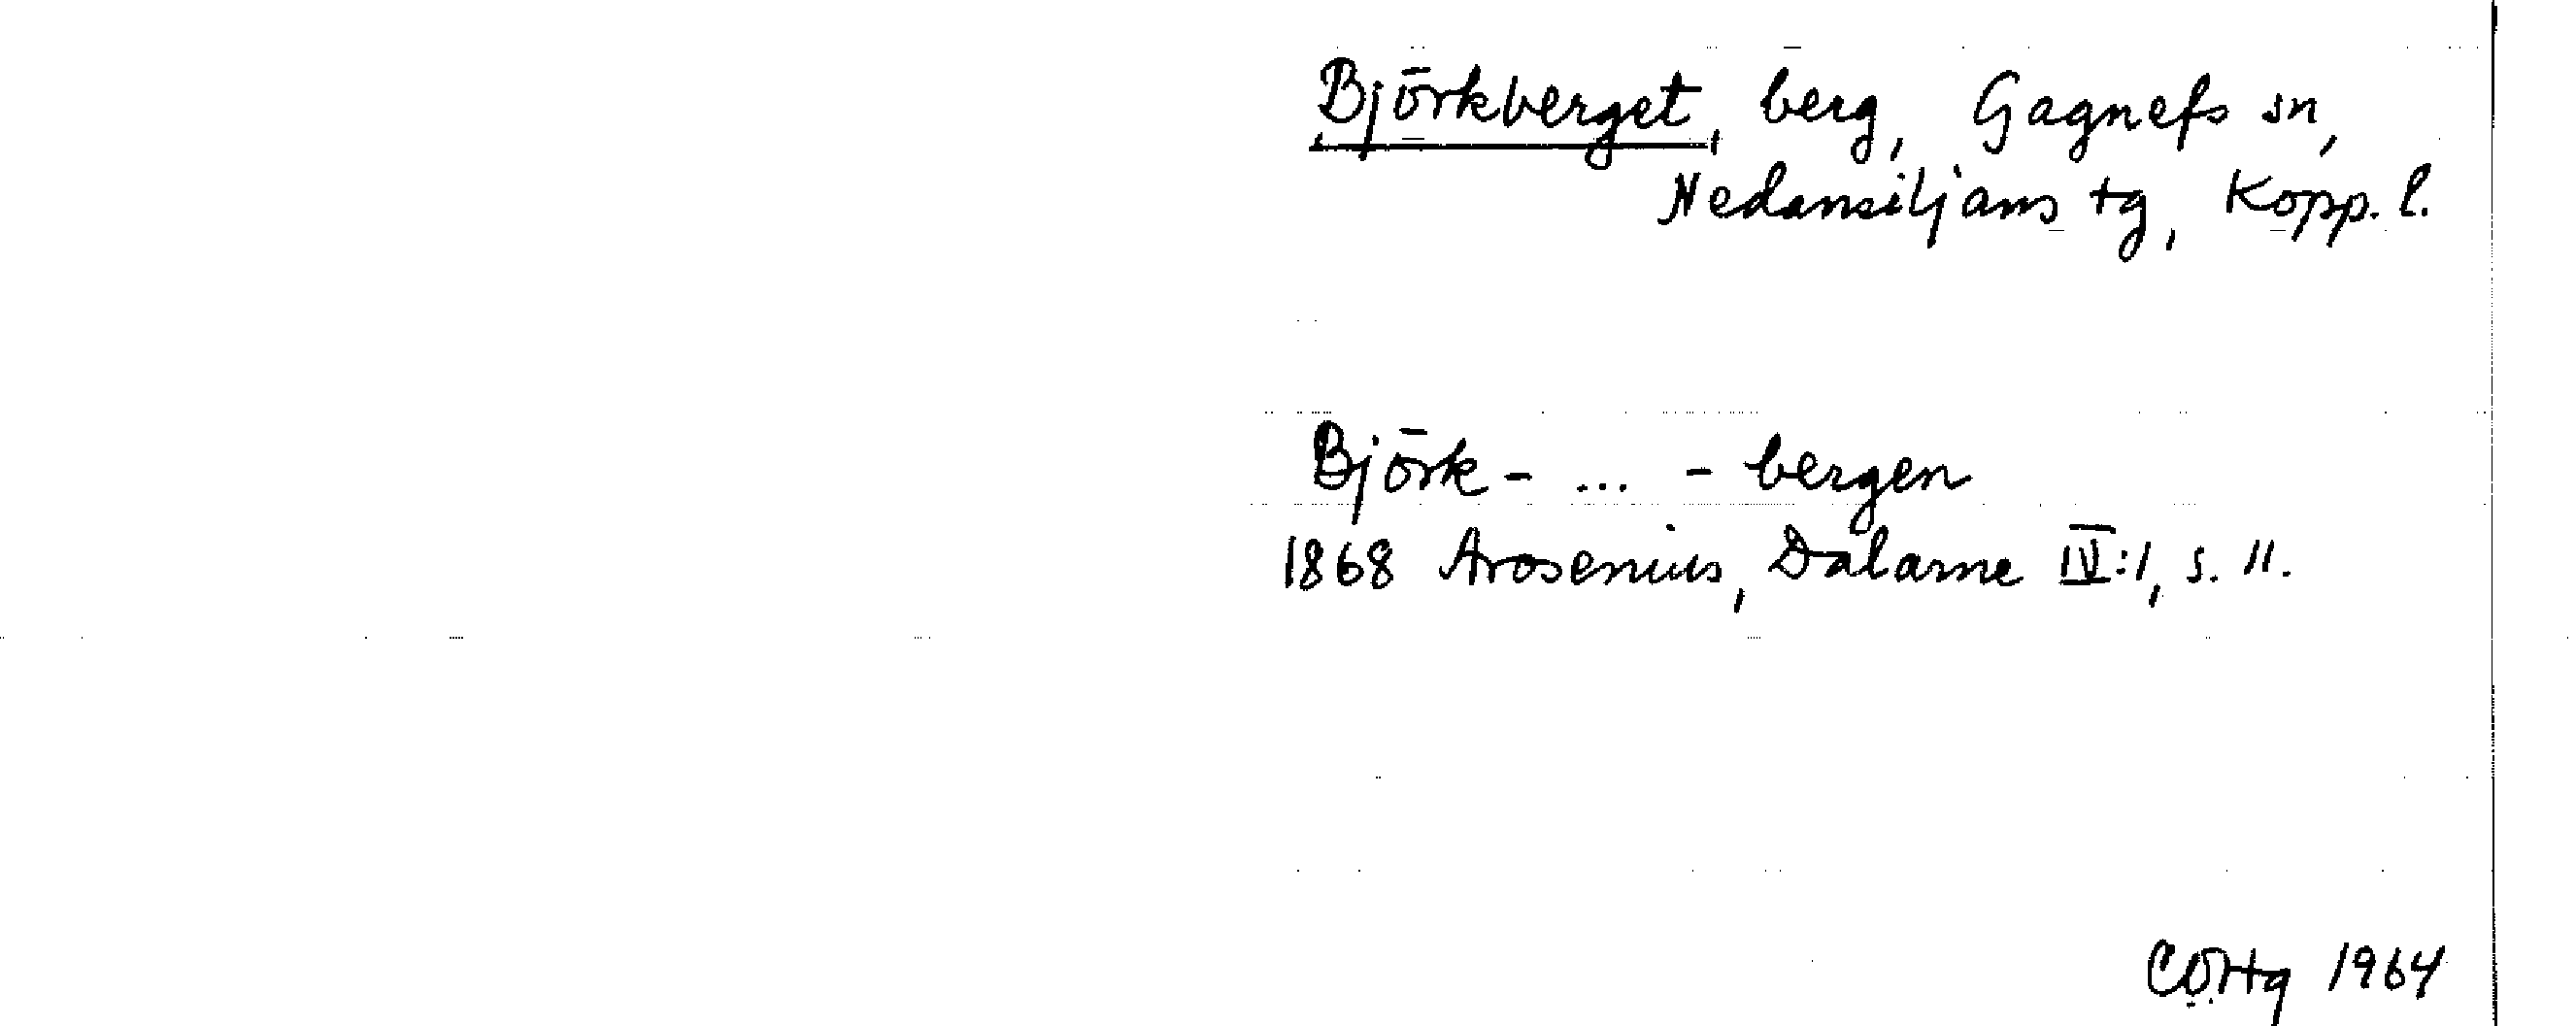 Björkberget, berg, Gagnefs sn,
Nedansiljans tg, Kopp. l.
Björk- ... -bergen
1868 Arosenius, Dalarne IV:1, s. 11.
1964